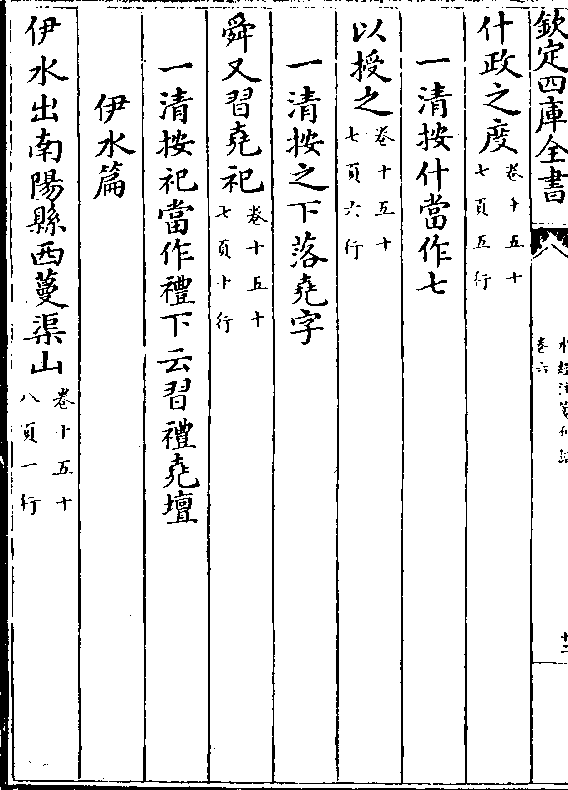 欽定四庫全書
卷六
什政之度卷十五十七頁五行
一清按什當作七
以授之卷十五十七頁六行
一清按之下落堯字
舜又習堯祀卷十五十七頁十行
一清按祀當作禮下云習禮堯壇
伊水篇
伊水出南陽縣西蔓渠山卷十五十八頁一行